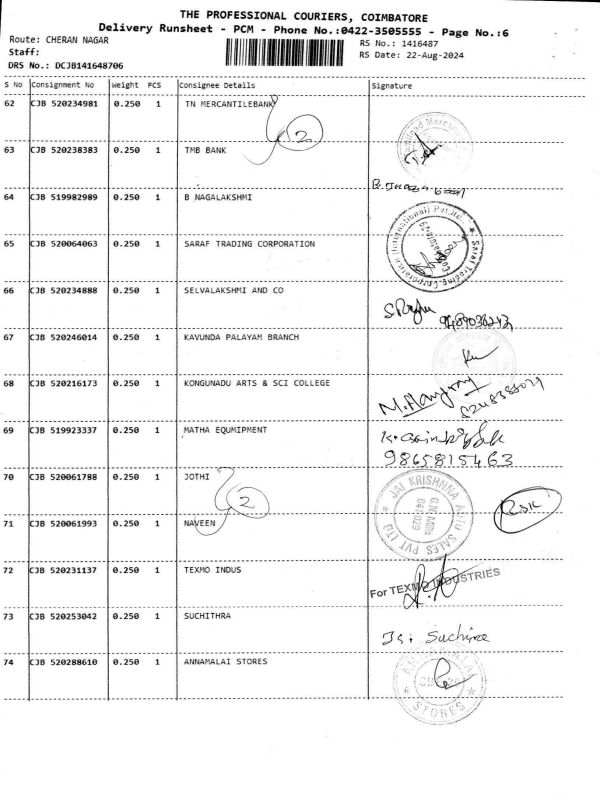 THE PROFESSIONAL COURIERS, COIMBATORE
Delivery Runsheet - PCM - Phone No.:0422-3505555 - Page No.:6
Route: CHERAN NAGAR
RS No.: 1416487
Staff:
RS Date: 22-Aug-2024
DRS No.: DCJB141648706
S No Consignment No Weight PCS Consignee Details Signature
62 CJB 520234981 0.250 1 TN MERCANTILEBANK
2
63 CJB 520238383 0.250 1 TMB BANK
64 CJB 519982989 0.250 1 B NAGALAKSHMI
65 CJB 520064063 0.250 1 SARAF TRADING CORPORATION
Saraf Trading Corporation (International) Pvt.Ltd.
66 CJB 520234888 0.250 1 SELVALAKSHMI AND CO
67 CJB 520246014 0.250 1 KAVUNDA PALAYAM BRANCH
68 CJB 520216173 0.250 1 KONGUNADU ARTS & SCI COLLEGE
69 CJB 519923337 0.250 1 MATHA EQUMIPMENT
9865815463
70 CJB 520061788 0.250 1 JOTHI
2
JAI KRISHNAA AUTO SALES PVT LTD
G.N. Mills
641 029
71 CJB 520061993 0.250 1 NAVEEN
72 CJB 520231137 0.250 1 TEXMO INDUS
For TEXMO INDUSTRIES
73 CJB 520253042 0.250 1 SUCHITHRA
74 CJB 520288610 0.250 1 ANNAMALAI STORES
STORES